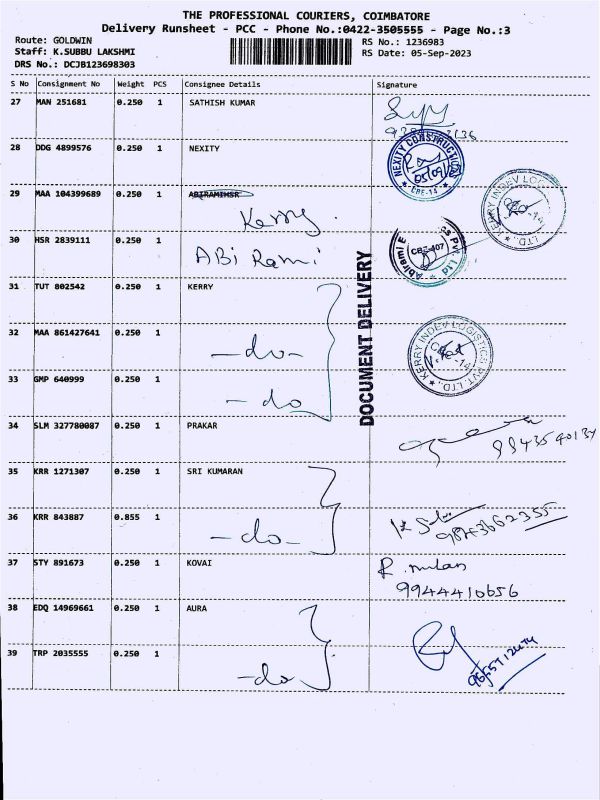 THE PROFESSIONAL COURIERS, COIMBATORE
Delivery Runsheet - PCC - Phone No.:0422-3505555 - Page No.:3
Route: GOLDWIN
Staff: K.SUBBU LAKSHMI
DRS No.: DCJB123698303
RS No.: 1236983
RS Date: 05-Sep-2023
S No Consignment No Weight PCS Consignee Details Signature
27 MAN 251681 0.250 1 SATHISH KUMAR
28 DDG 4899576 0.250 1 NEXITY
NEXITY CONSTRUCTION
CBE-14
29 MAA 104399689 0.250 1 ABIRAMIHSR
Kerry.
KERRY INDEV LOGISTICS PVT. LTD.
30 HSR 2839111 0.250 1
ABi Rami
Abirami Pvt. Ltd
31 TUT 802542 0.250 1 KERRY
DOCUMENT DELIVERY
32 MAA 861427641 0.250 1
-do-
KERRY INDEV LOGISTICS PVT. LTD.
33 GMP 640999 0.250 1
-do
34 SLM 327780087 0.250 1 PRAKAR
9943540134
35 KRR 1271307 0.250 1 SRI KUMARAN
36 KRR 843887 0.855 1
-do-
9843662355
37 STY 891673 0.250 1 KOVAI
R.
9944410656
38 EDQ 14969661 0.250 1 AURA
39 TRP 2035555 0.250 1
-do